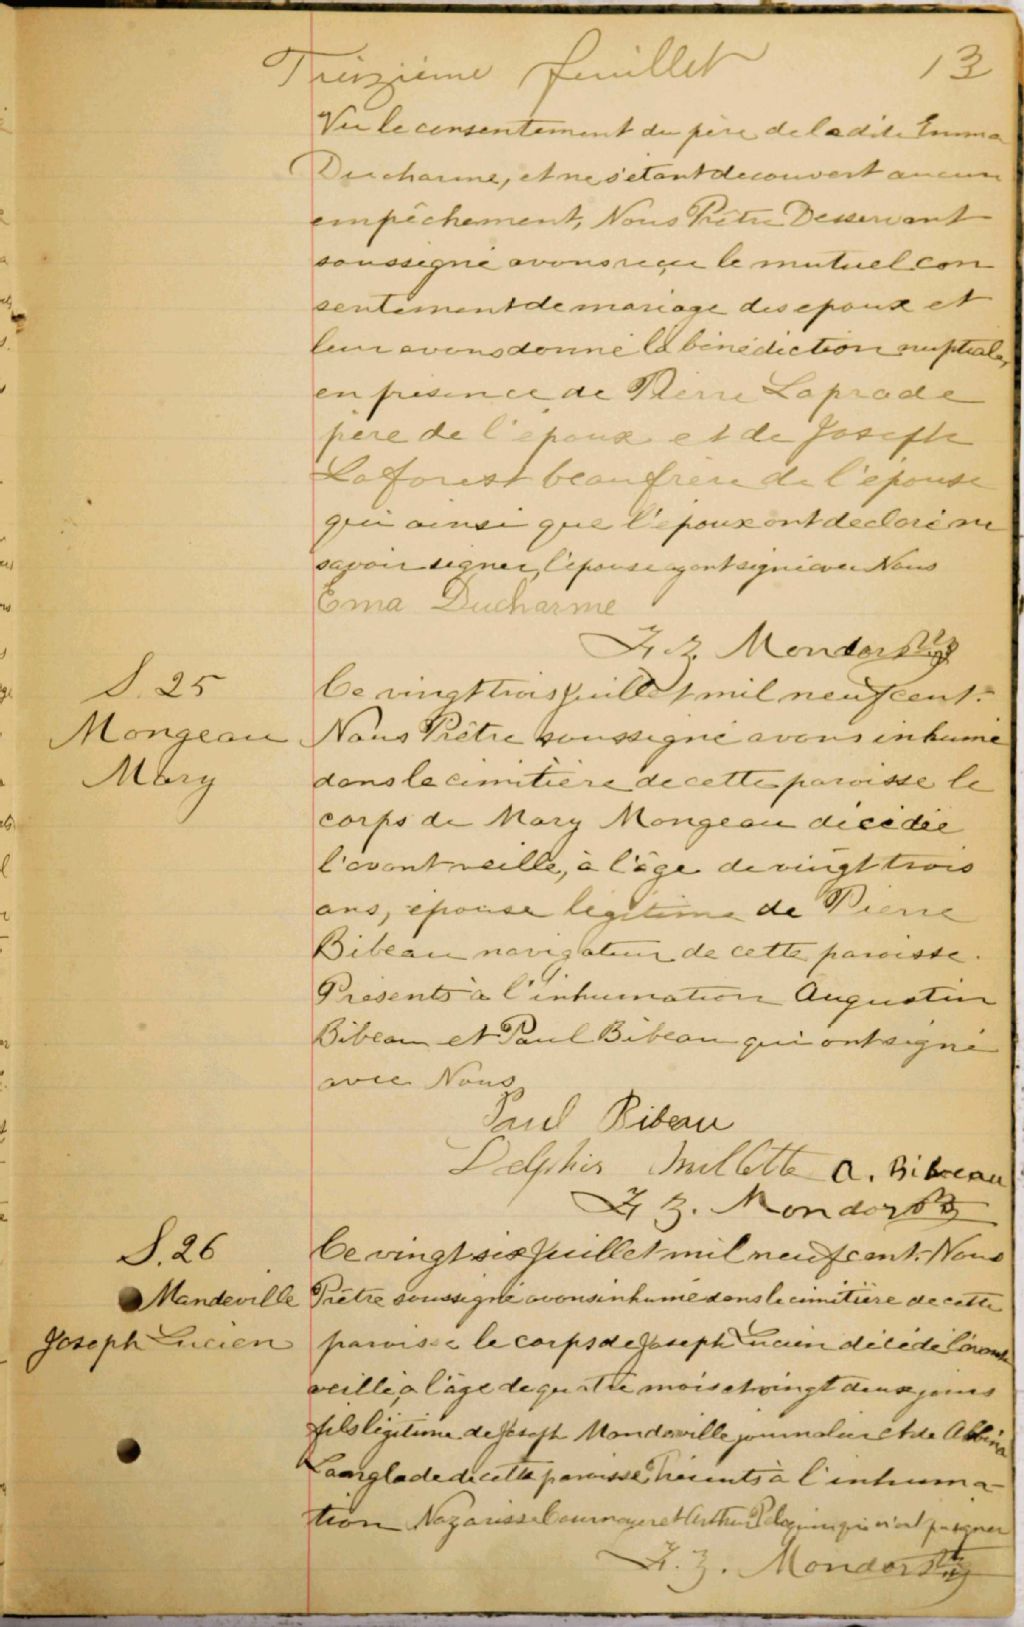 Treizième feuillet 13
Vu le consentement du père de la dite Emma
Ducharme, et ne s'étant decouvert aucun
empêchement, Nous Prêtre Desservant
soussigné avons reçu le mutuel con
sentement de mariage des epoux et
leur avons donné la bénédiction nuptiale,
en présence de Pierre Laprade
père de l'époux et de Joseph
Laforest beaufrère de l'épouse
qui ainsi que l'époux ont declaré ne
savoir signer, l'épouse ayant signé avec Nous
Ema Ducharme
F. Z. Mondor Ptre
S. 25
Mongeau
Mary
Ce vingt trois juillet mil neuf cent.
Nous Prêtre soussigné avons inhumé
dans le cimitière de cette paroisse le
corps de Mary Mongeau décédée
l'avant veille, à l'âge de vingt trois
ans, épouse légitime de Pierre
Bibeau navigateur de cette paroisse.
Présents à l'inhumation Augustin
Bibeau et Paul Bibeau qui ont signé
avec Nous
Paul Bibeau
Delphis A. Bibeau
F. Z. Mondor Ptre
S. 26
Mandeville
Joseph Lucien
Ce vingt six Juillet mil neuf cent. Nous
Prêtre soussigné avons inhumé dans le cimitière de cette
paroisse le corps de Joseph Lucien décédé l'avant
veille, à l'âge de quatre mois et vingt deux jours
fils légitime de Joseph Mandeville journalier et de Albina
Langlade de cette paroisse Présents à l'inhuma-
tion Nazaire Cournoyer et Arthur Péloquin qui n'ont pu signer
F. Z. Mondor Ptre